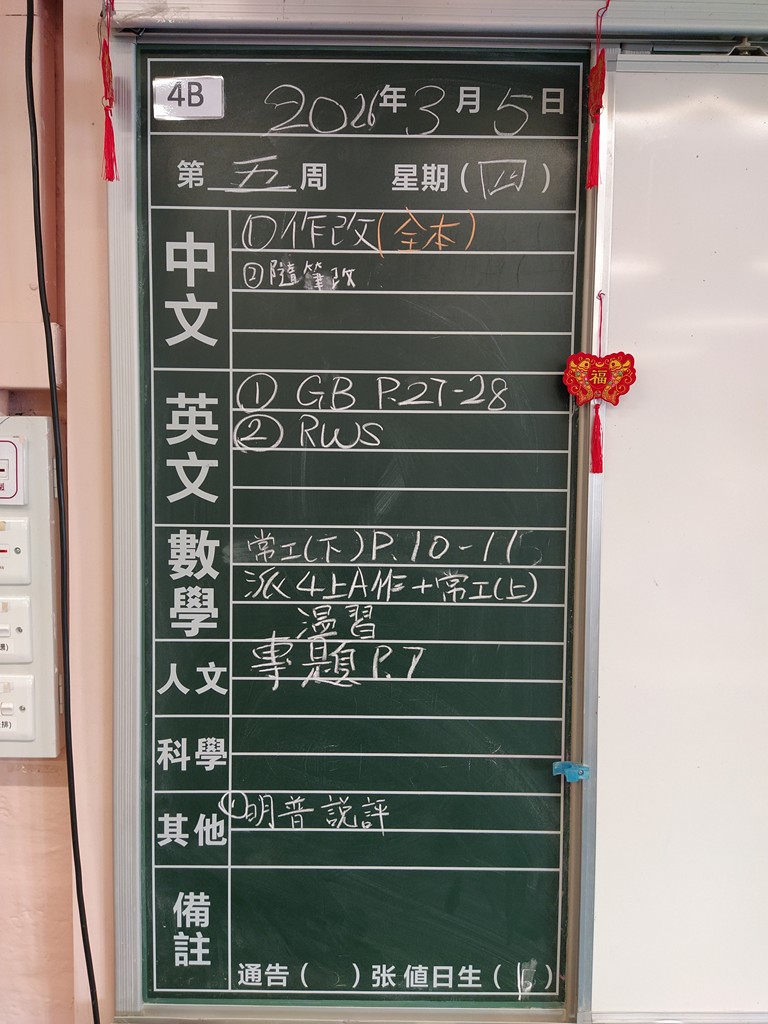 4B
2026年3月5日
第五周 星期(四)
中文
①作改(全本)
②隨筆改
英文
① GB P.27-28
② RWS
數學
常工(下)P.10-11
派4上A作+常工(上)
溫習
人文
專題P.7
科學
其他
①明普說評
備註
通告( )张 值日生( )
福